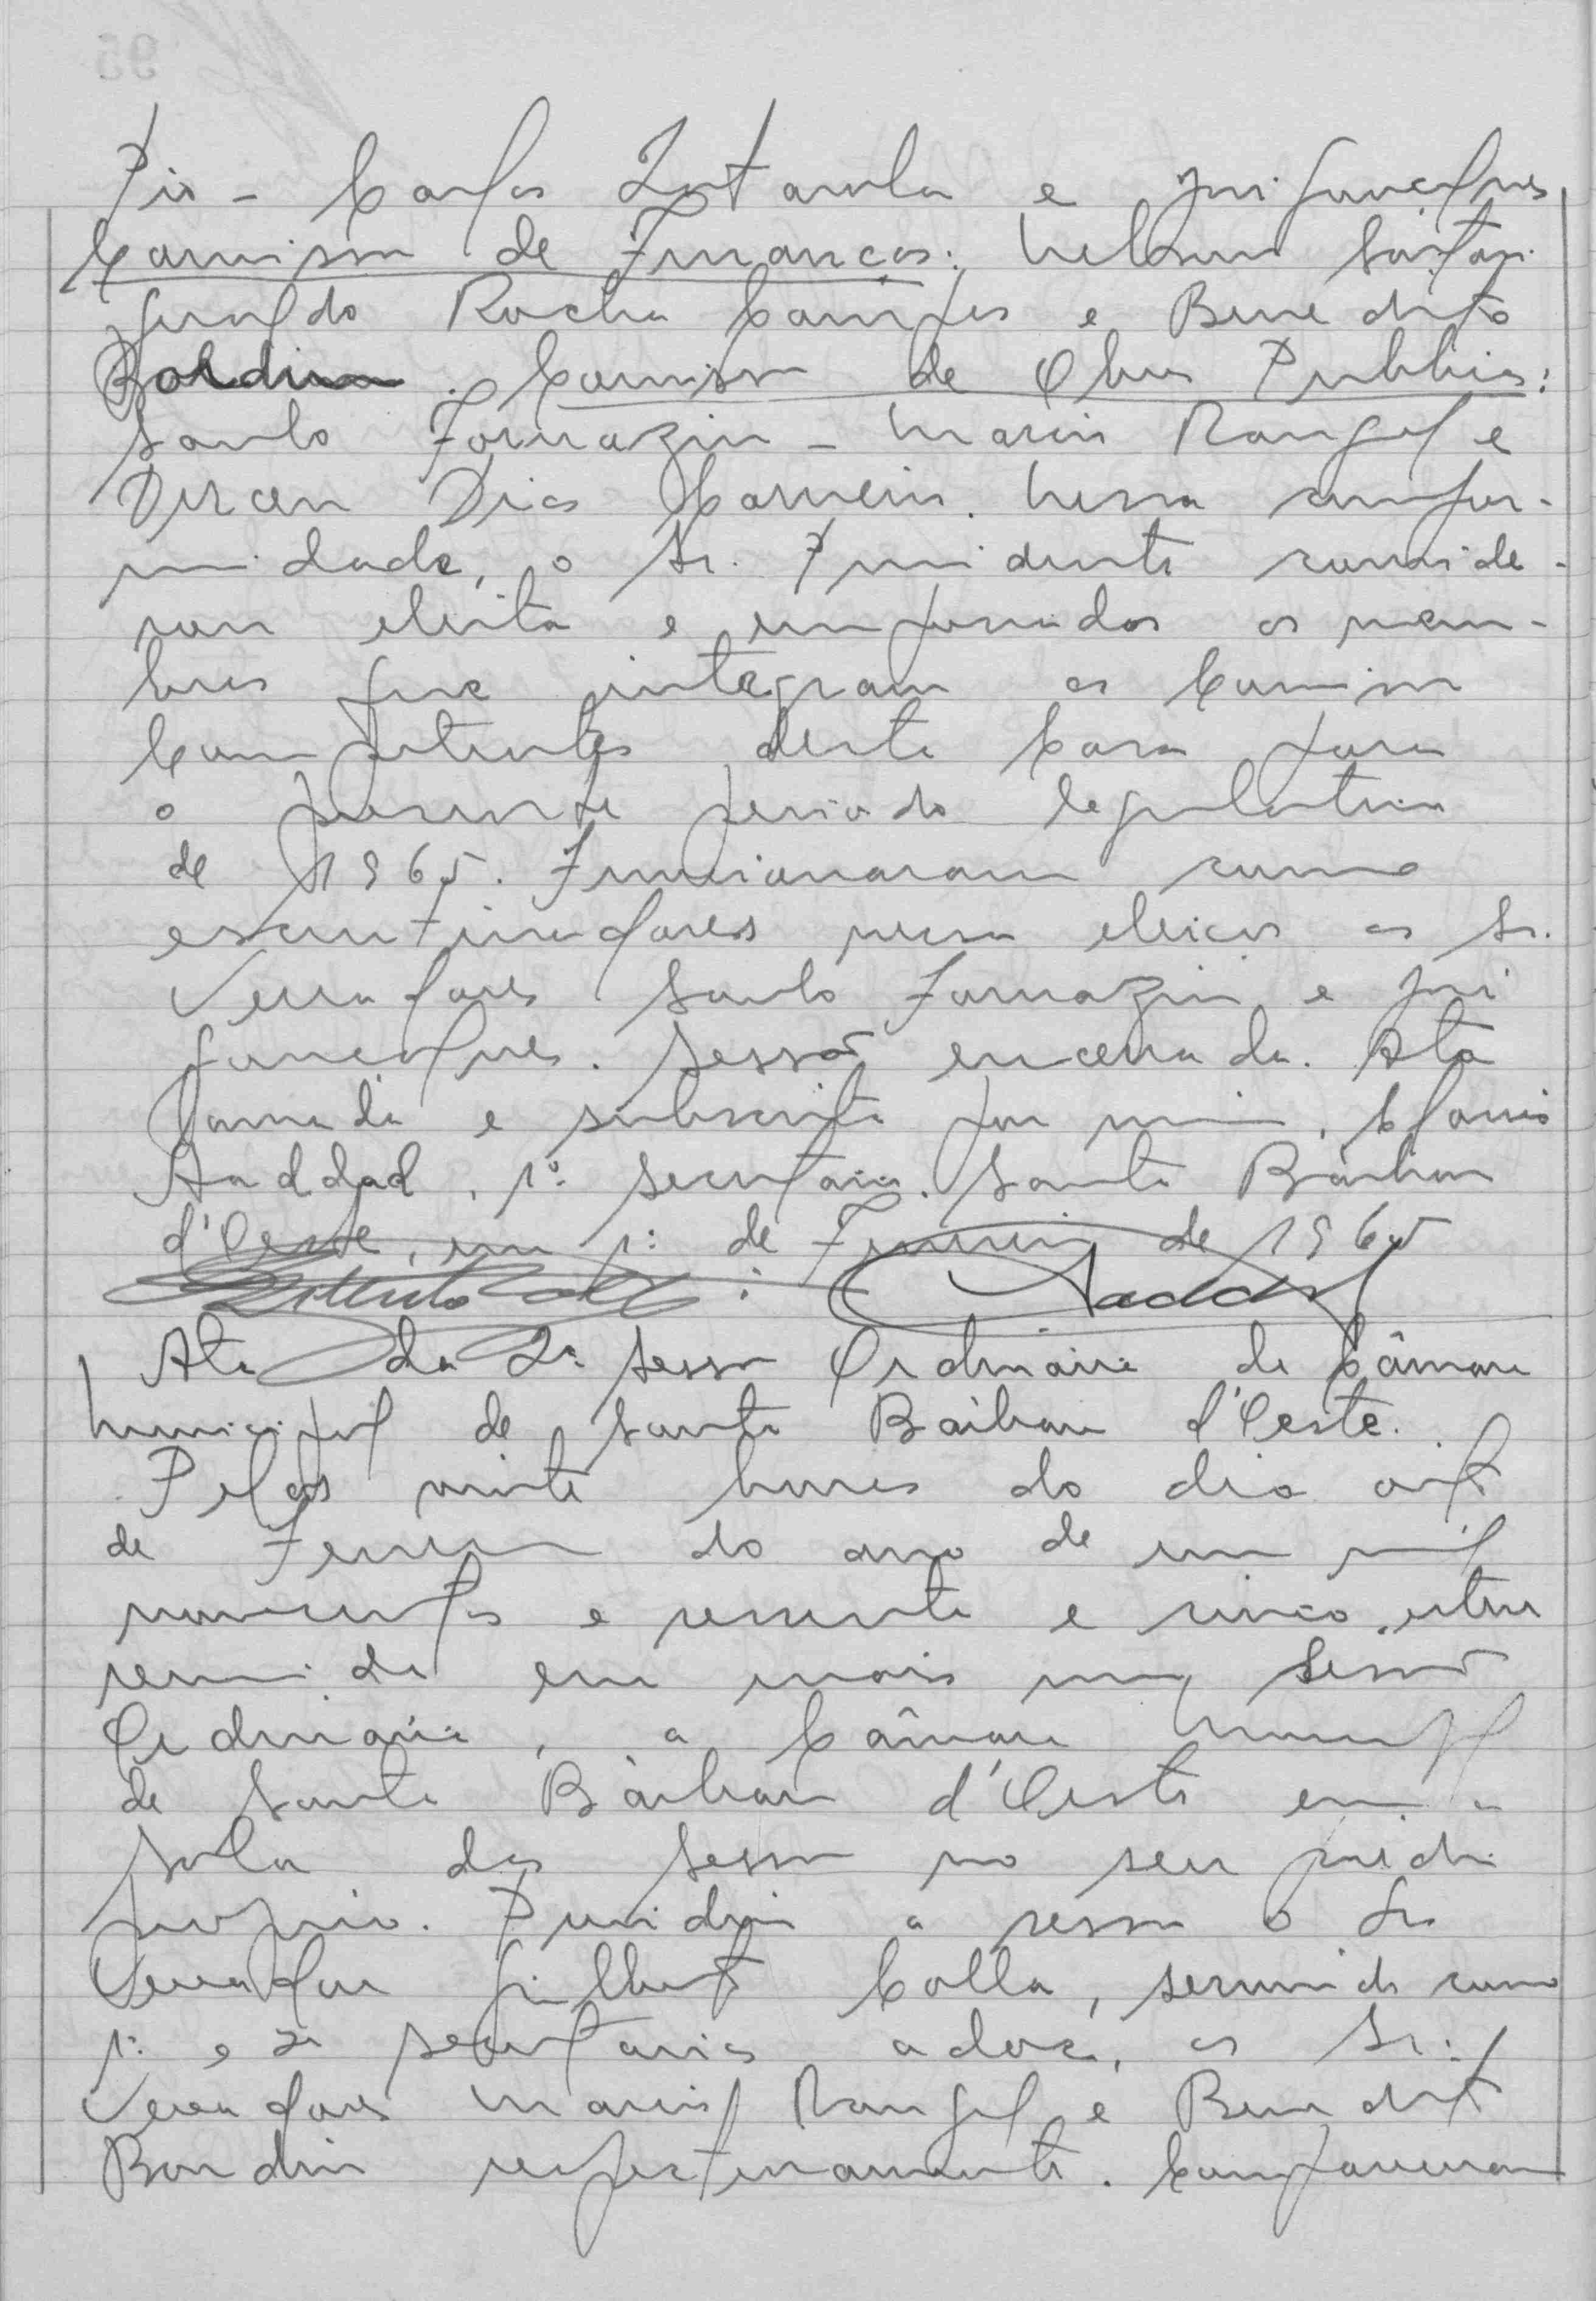 Pio - Carlos Lontarola e José Gonçalves
Comissão de Finanças: Nelson Sartori
Geraldo Rocha Campos e Benedito
Bordim. Comissão de Obras Publicas:
Santo Fornazin - Mario Rangel e
Dirceu Dias Carneiro. Nessa confor-
midade, o Sr. Presidente conside-
rou eleita e empossados os mem-
bros que integram as Comissões
Competentes desta Casa para
o presente periodo legislativo
de 1965. Funcionaram como
escrutinadores nessa eleição os Sr.
Vereadores Santo Fornazin e José
Gonçalves. Sessão encerrada. Ata
lavrada e subscrita por mim,
Haddad, 1º Secretario. Santa Bárbara
d'Oeste, em 1º de Fevereiro de 1965
Haddad
Ata da 2ª Sessão Ordinária da Câmara
Municipal de Santa Bárbara d'Oeste.
Pelas vinte horas do dia oito
de Fevereiro do ano de um mil
novecentos e sessenta e cinco, esteve
reunida em mais uma Sessão
Ordinária, a Câmara Municipal
de Santa Bárbara d'Oeste em a
sala das Sessões no seu predio
proprio. Presidiu a sessão o Sr
Vereador Gilberto Colla, servindo como
1º e 2º secretarios adoc, os Sr.
Vereadores Mario Rangel e Benedito
Bordin respectivamente. Compareceram